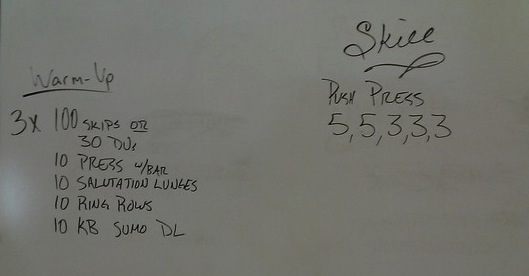 Warm-Up
3x 100 SKIPS OR
30 DUs
10 PRESS w/BAR
10 SALUTATION LUNGES
10 RING ROWS
10 KB SUMO DL
Skill
PUSH PRESS
5,5,3,3,3